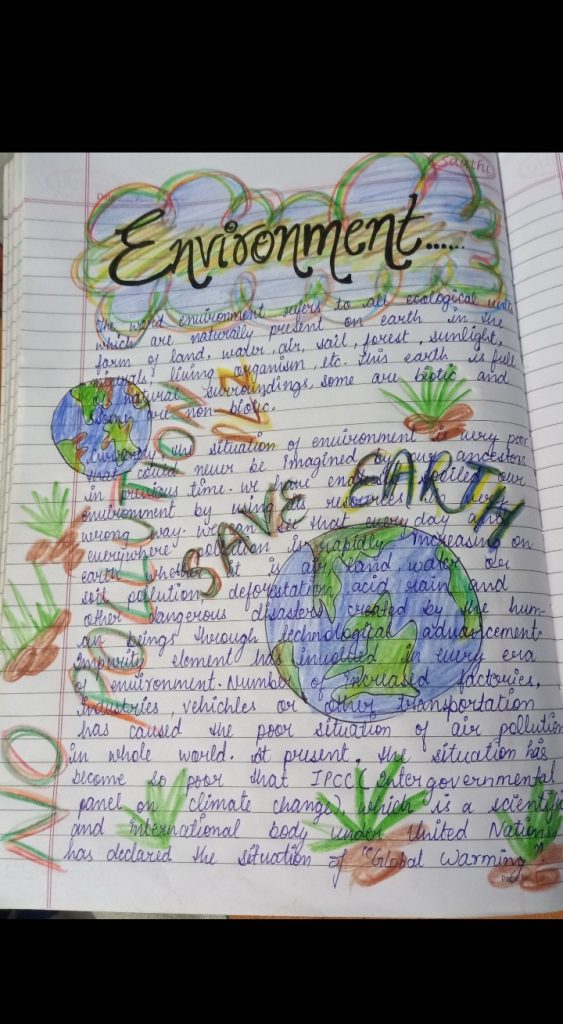 Saathi
Environment......
The word environment refers to all ecological units
which are naturally present on earth in the
form of land, water, air, soil, forest, sunlight,
minerals, living organism, etc. This earth is full
of natural surroundings, some are biotic and
some are non biotic.
Currently the situation of environment is very poor
that could never be imagined by our ancestors
in previous time. We have endlessly spoiled our
environment by using its resources in very
wrong way. We can see that every day and
everywhere pollution is rapidly increasing on
earth whether it is air, land, water or
soil pollution, deforestation, acid rain and
other dangerous disasters created by the hum-
an beings through technological advancement.
Impurity element has involved in every era
of environment. Number of increased factories,
industries, vehichles or other transportation
has caused the poor situation of air pollution
in whole world. At present, the situation has
become so poor that IPCC (Inter governmental
panel on climate change) which is a scientific
and international body under United Nations
has declared the situation of "Global Warming".
NO POLLUTION
SAVE EARTH
Page No.